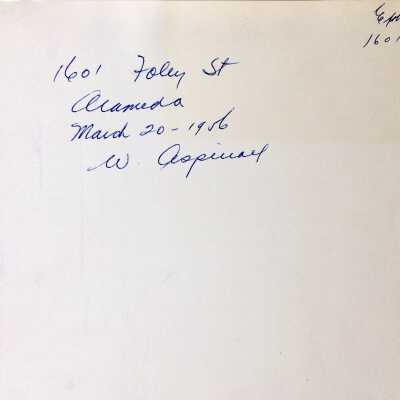 1601
1601 Foley St
Alameda
March 20 - 1956
W. Aspinall